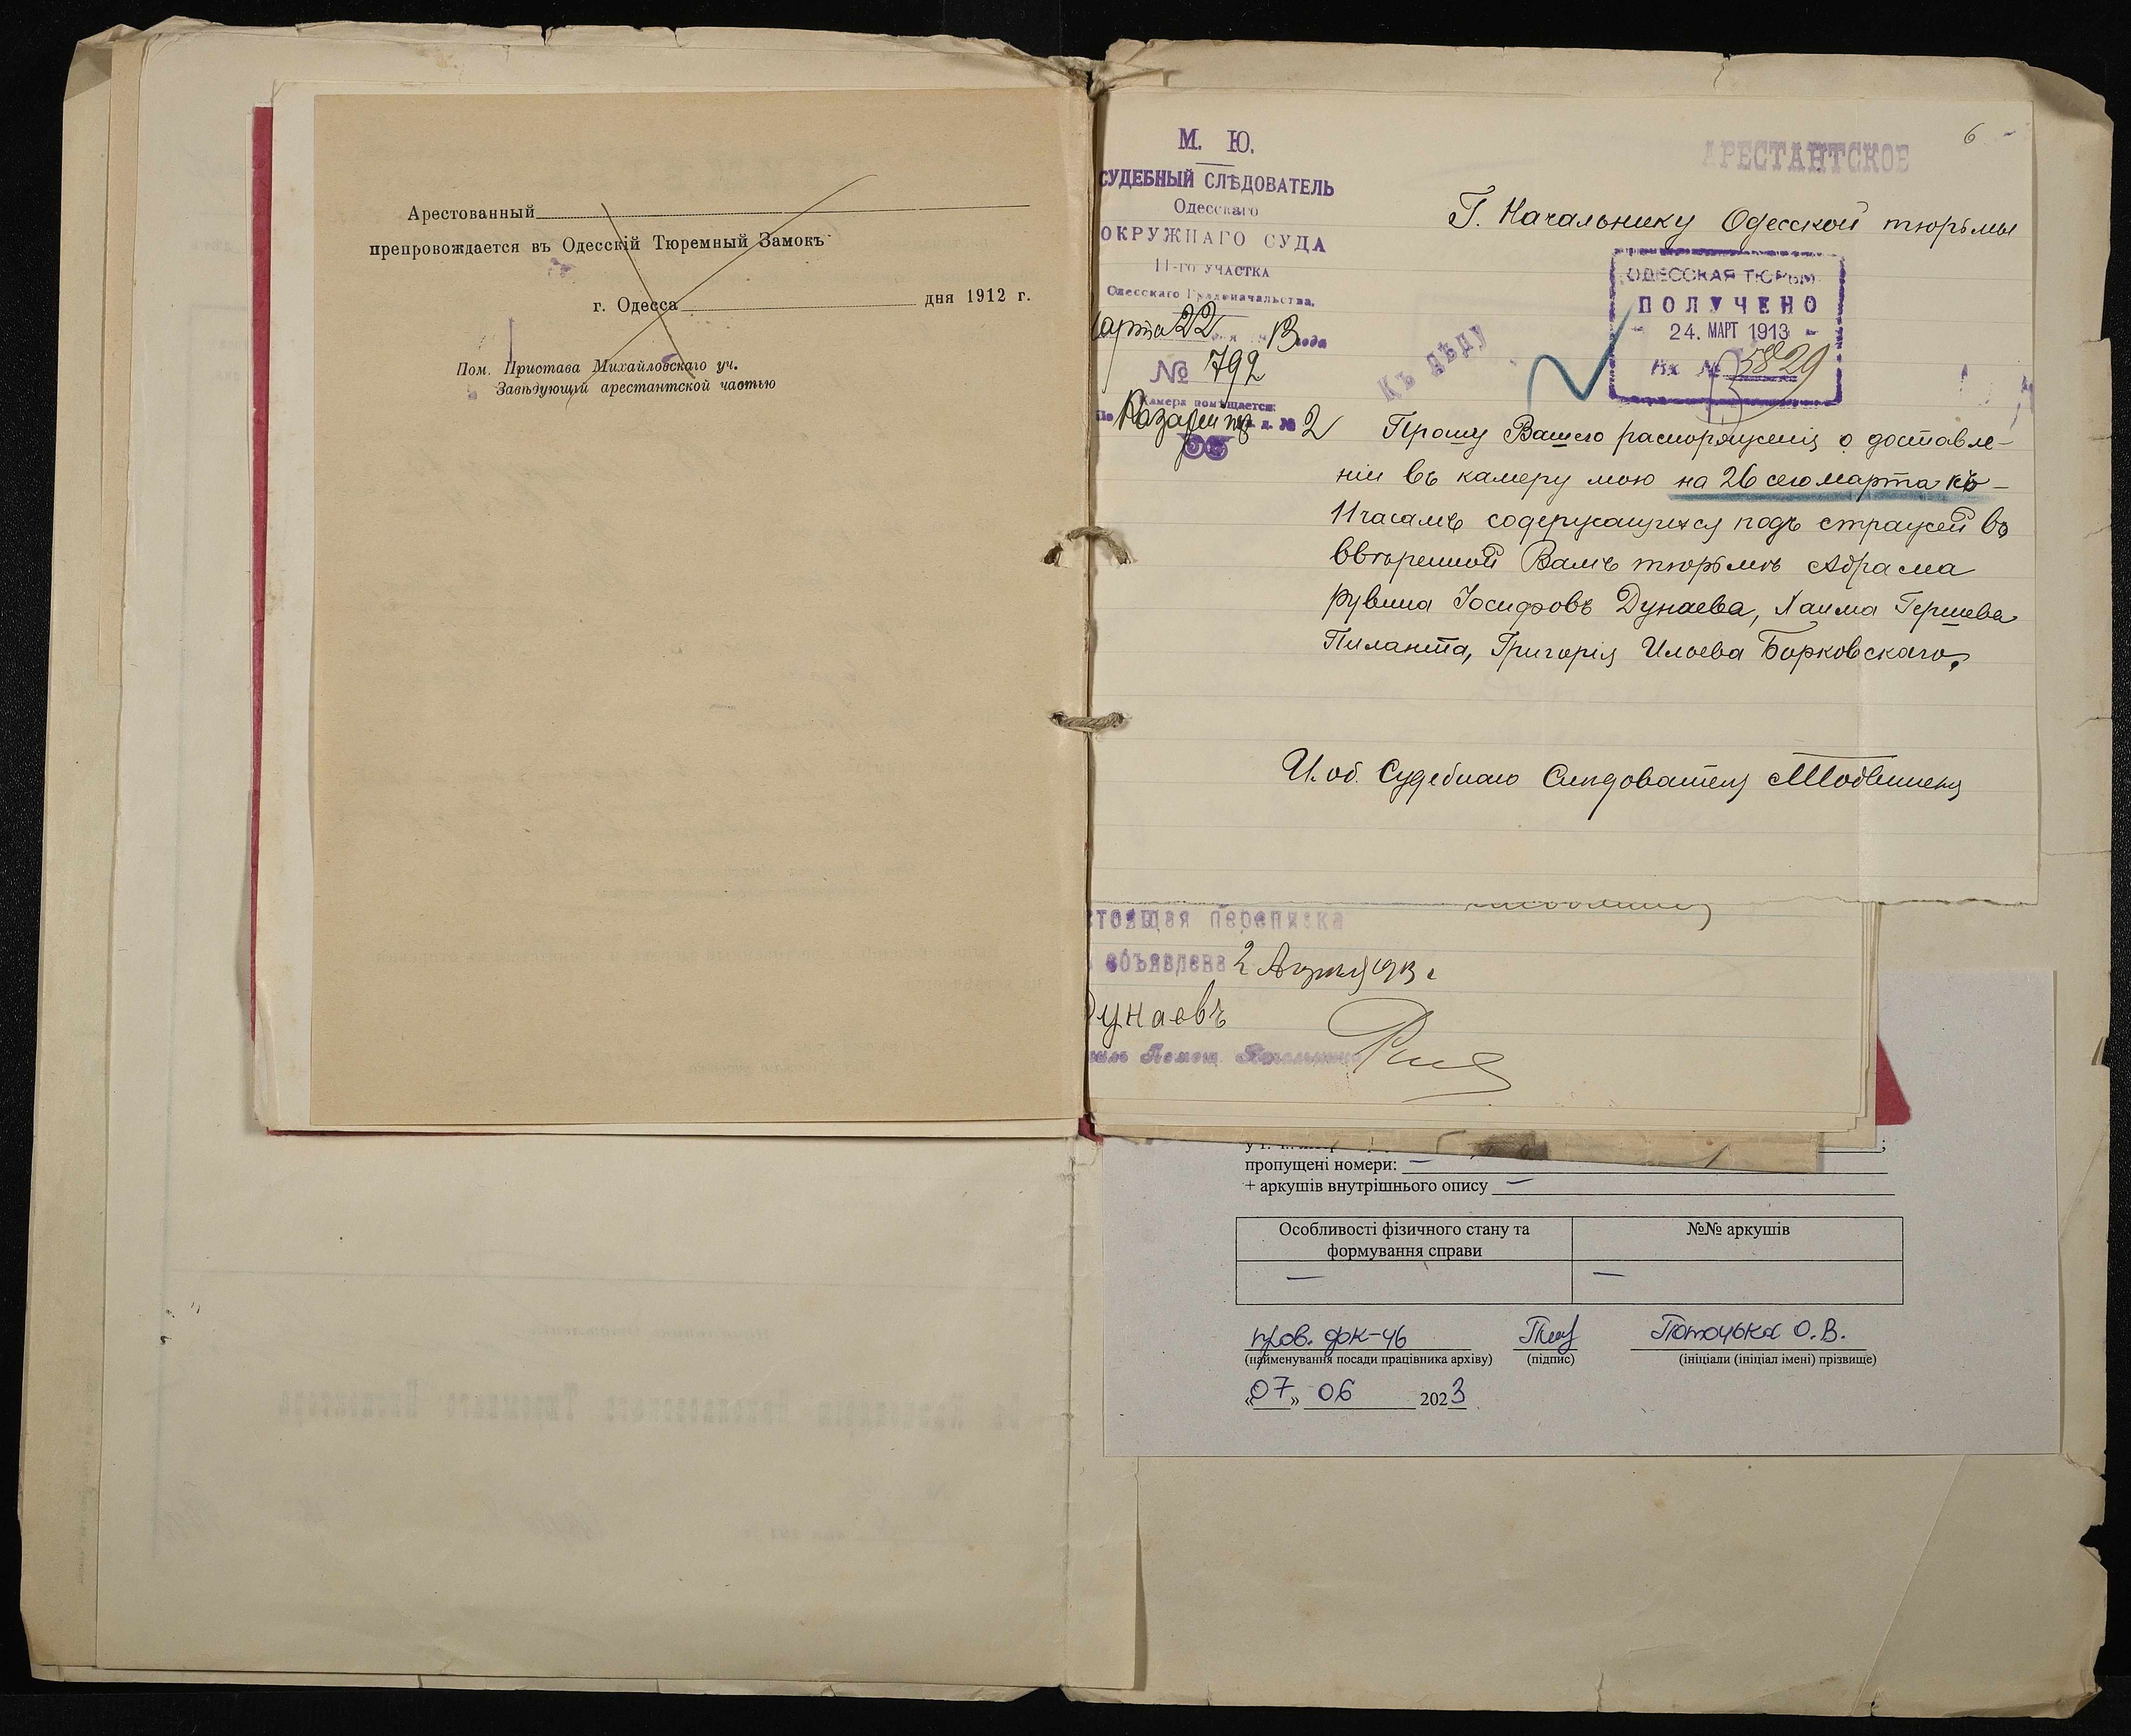 Арестованный
препровождается въ Одесскій Тюремный Замокъ
г. Одесса дня 1912 г.
Пом. Пристава Михайловскаго уч.
Завѣдующій арестантской частью
6
АРЕСТАНТСКОЕ
М. Ю.
СУДЕБНЫЙ СЛѢДОВАТЕЛЬ
Одесскаго
ОКРУЖНАГО СУДА
11-го УЧАСТКА
Одесскаго Градоначальства.
арта 22 13 года
№ 792
Камера помѣщается:
д. № 2
Г. Начальнику Одесской тюрьмы
ОДЕССКАЯ ТЮРЬМ
ПОЛУЧЕНО
24. МАРТ 1913
Вх № 5829
Къ дѣлу
Прошу Вашего распоряженія о доставле-
ніи въ камеру мою на 26 сего марта къ
11 часамъ содержащихся подъ стражей въ
ввѣренной Вамъ тюрьмѣ Абрама
Рувина Іосифовъ Дунаева, Хаима Гершева
Пиланта, Григорія Ильева Борковскаго.
И. об. Судебнаго Слѣдователя
стоящая переписка
объявлена 2 Апрѣля 1913 г
Дунаевъ
Помощ. Начальника
пропущені номери: —
+ аркушів внутрішнього опису —
Особливості фізичного стану та
формування справи
№№ аркушів
—
—
пров. фк-чб
Поточька О.В.
(найменування посади працівника архіву) (підпис) (ініціали (ініціал імені) прізвище)
«07» 06 2023